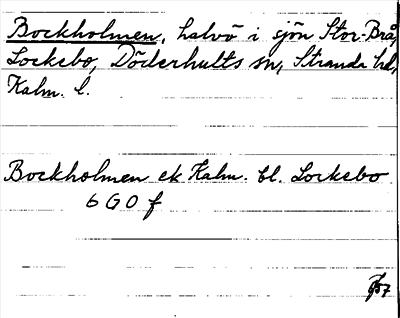 Bockholmen, halvö i sjön Stor-Brå,
Lockebo, Döderhults sn, Stranda hd,
Kalm. l.
Bockholmen ek Kalm. bl. Lockebo
6 G 0 f